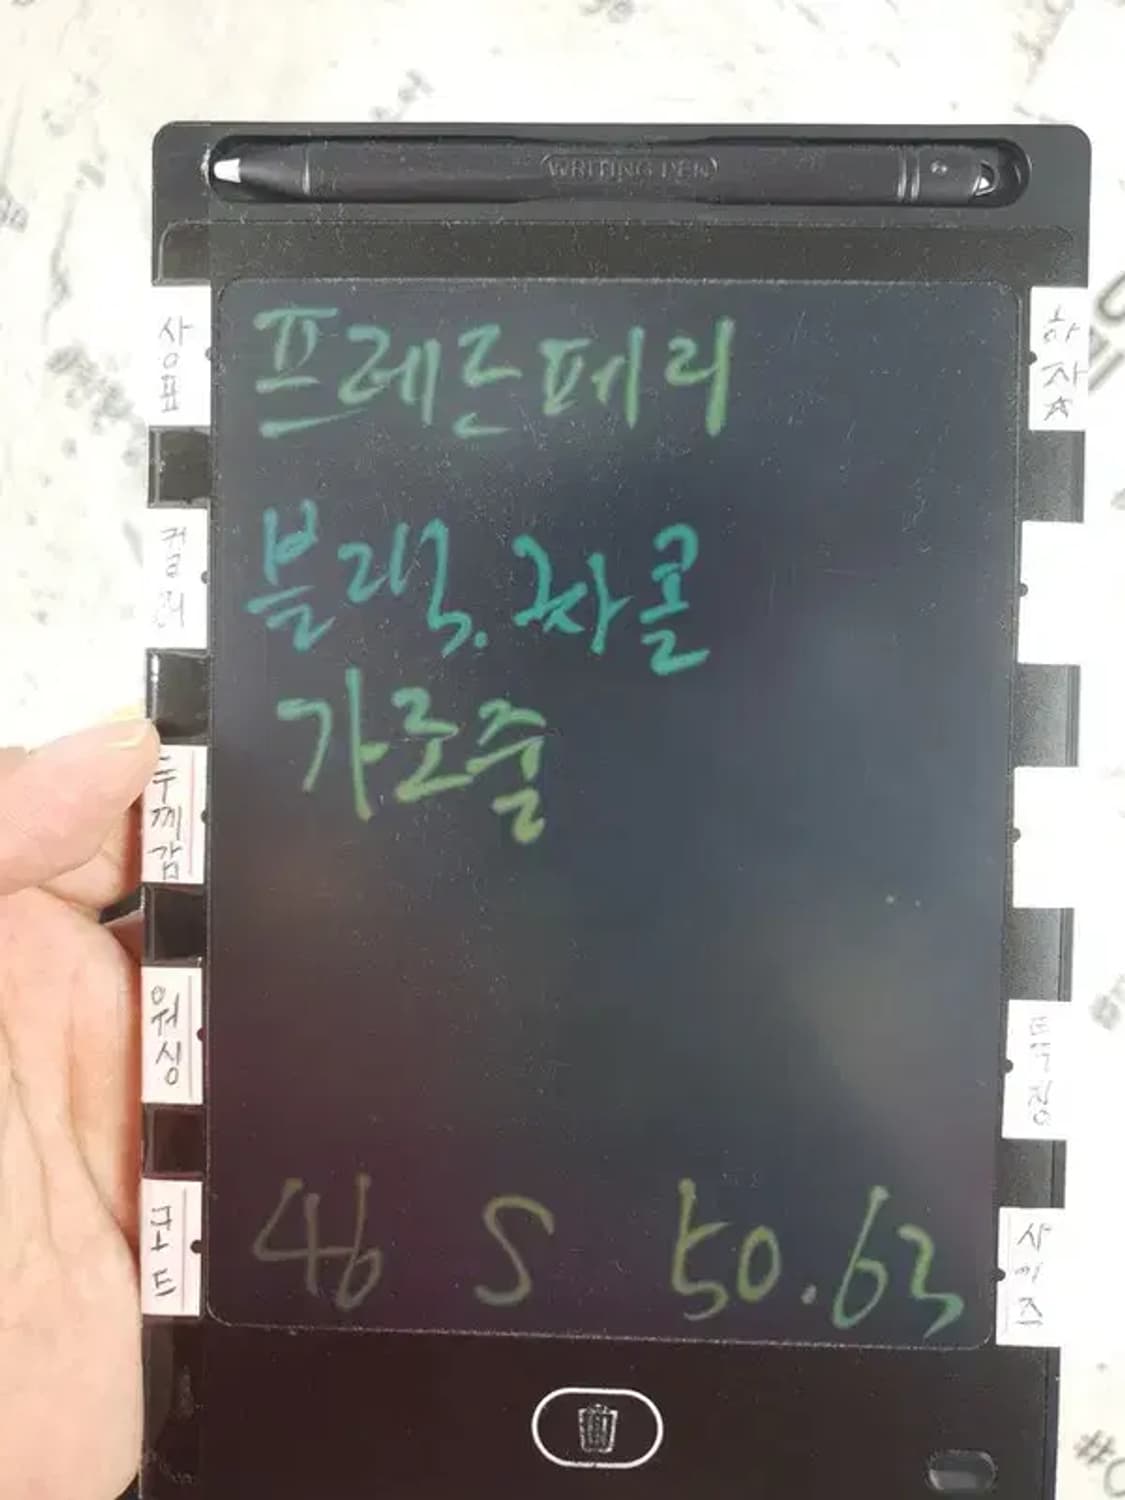 WRITING PEN
상표
프레드페리
하자☆
컬러
블랙.차콜
가로줄
두께감
워싱
특징
코드
46 S 50.63
사이즈